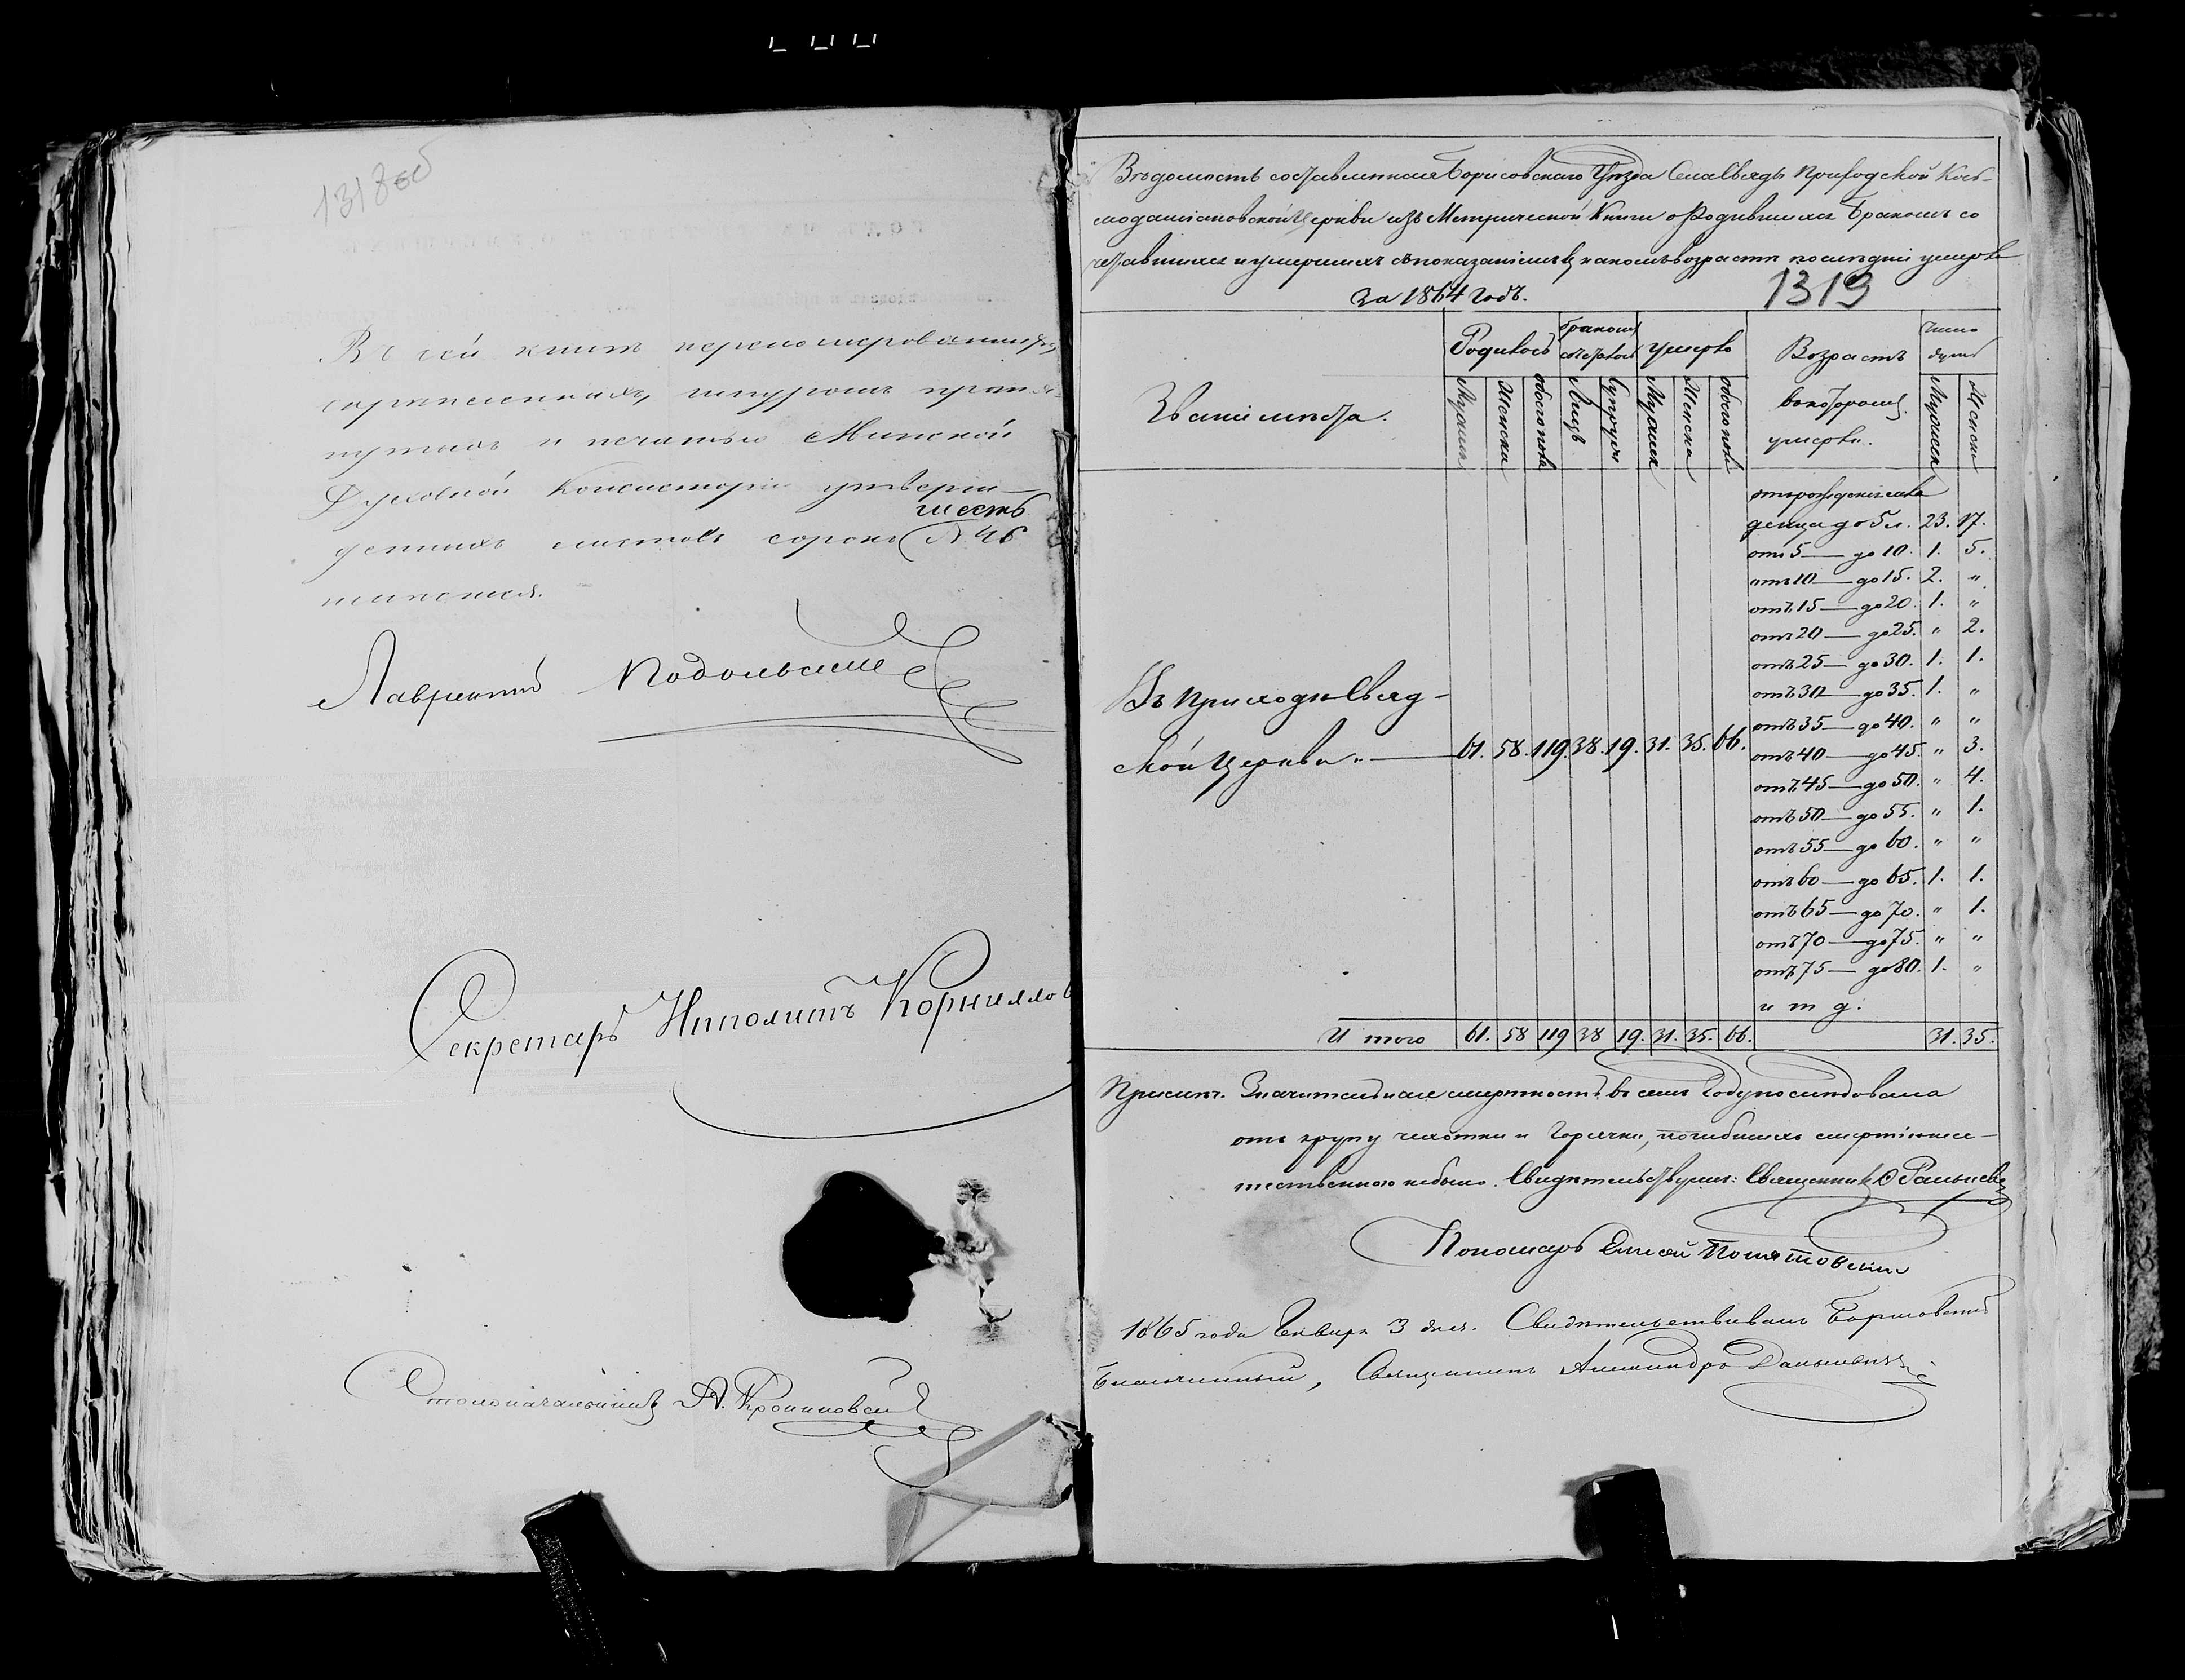 1318 об
Въ сей книгѣ перенумерованныхъ,
скрѣпленныхъ, шнуромъ прошну
путыхъ и печатью Минской
Духовной Консисторіи утверж
шесть
денныхъ листовъ сорокъ (N 46
Лаврентій Подольскій
Секретарь Ипполитъ Корниллов
Столоначальникъ А.
Вѣдомость составленная Борисовскаго Уѣзда Села Свядъ Приходской Кось-
модаміановской Церкви изъ Метрической Книги о Родившихся Бракомъ со
четавшихся и умершихъ съ показаніемъ въ какомъ возрастѣ послѣдніе умерли
За 1864 Годъ.
1319
Званіе мѣста.
Родилось
бракомъ сочеталось
умерло
Возрастъ
въ которомъ
умерли.
Число душъ
Мужска
Женска
обоего пола
Лицъ
Супружн
Мужска
Женска
обоего пола
Мужска
Женска
отъ рожденія мла
денца до 5 л. 23. 17.
отъ 5 — до 10. 1. 5.
отъ 10 — до 15. 2. "
отъ 15 — до 20. 1. "
отъ 20 — до 25. " 2.
отъ 25 — до 30. 1. 1.
отъ 30 — до 35. 1. "
отъ 35 — до 40. " "
отъ 40 — до 45. " 3.
отъ 45 — до 50. " 4.
отъ 50 — до 55. " 1.
отъ 55 — до 60. " "
отъ 60 — до 65. 1. 1.
отъ 65 — до 70. " 1.
отъ 70 — до 75. " "
отъ 75 — до 80. 1. "
и т д.
Въ Приходѣ Свяд-
ской Церкви — 61. 58. 119. 38. 19. 31. 35. 66.
И того 61. 58 119 38 19. 31. 35. 66. 31. 35.
Примѣч. Значительная смертность въ семъ Году послѣдовала
отъ крупу чахотки и Горячки, погибшихъ смертію нее-
стественною небыло. Свидѣтельствуемъ: Священникъ
Пономарь Елисей Понятовскій
1865 года Января 3 дня. Свидѣтельствовалъ Борисовскій
Благочинный, Священникъ Александръ